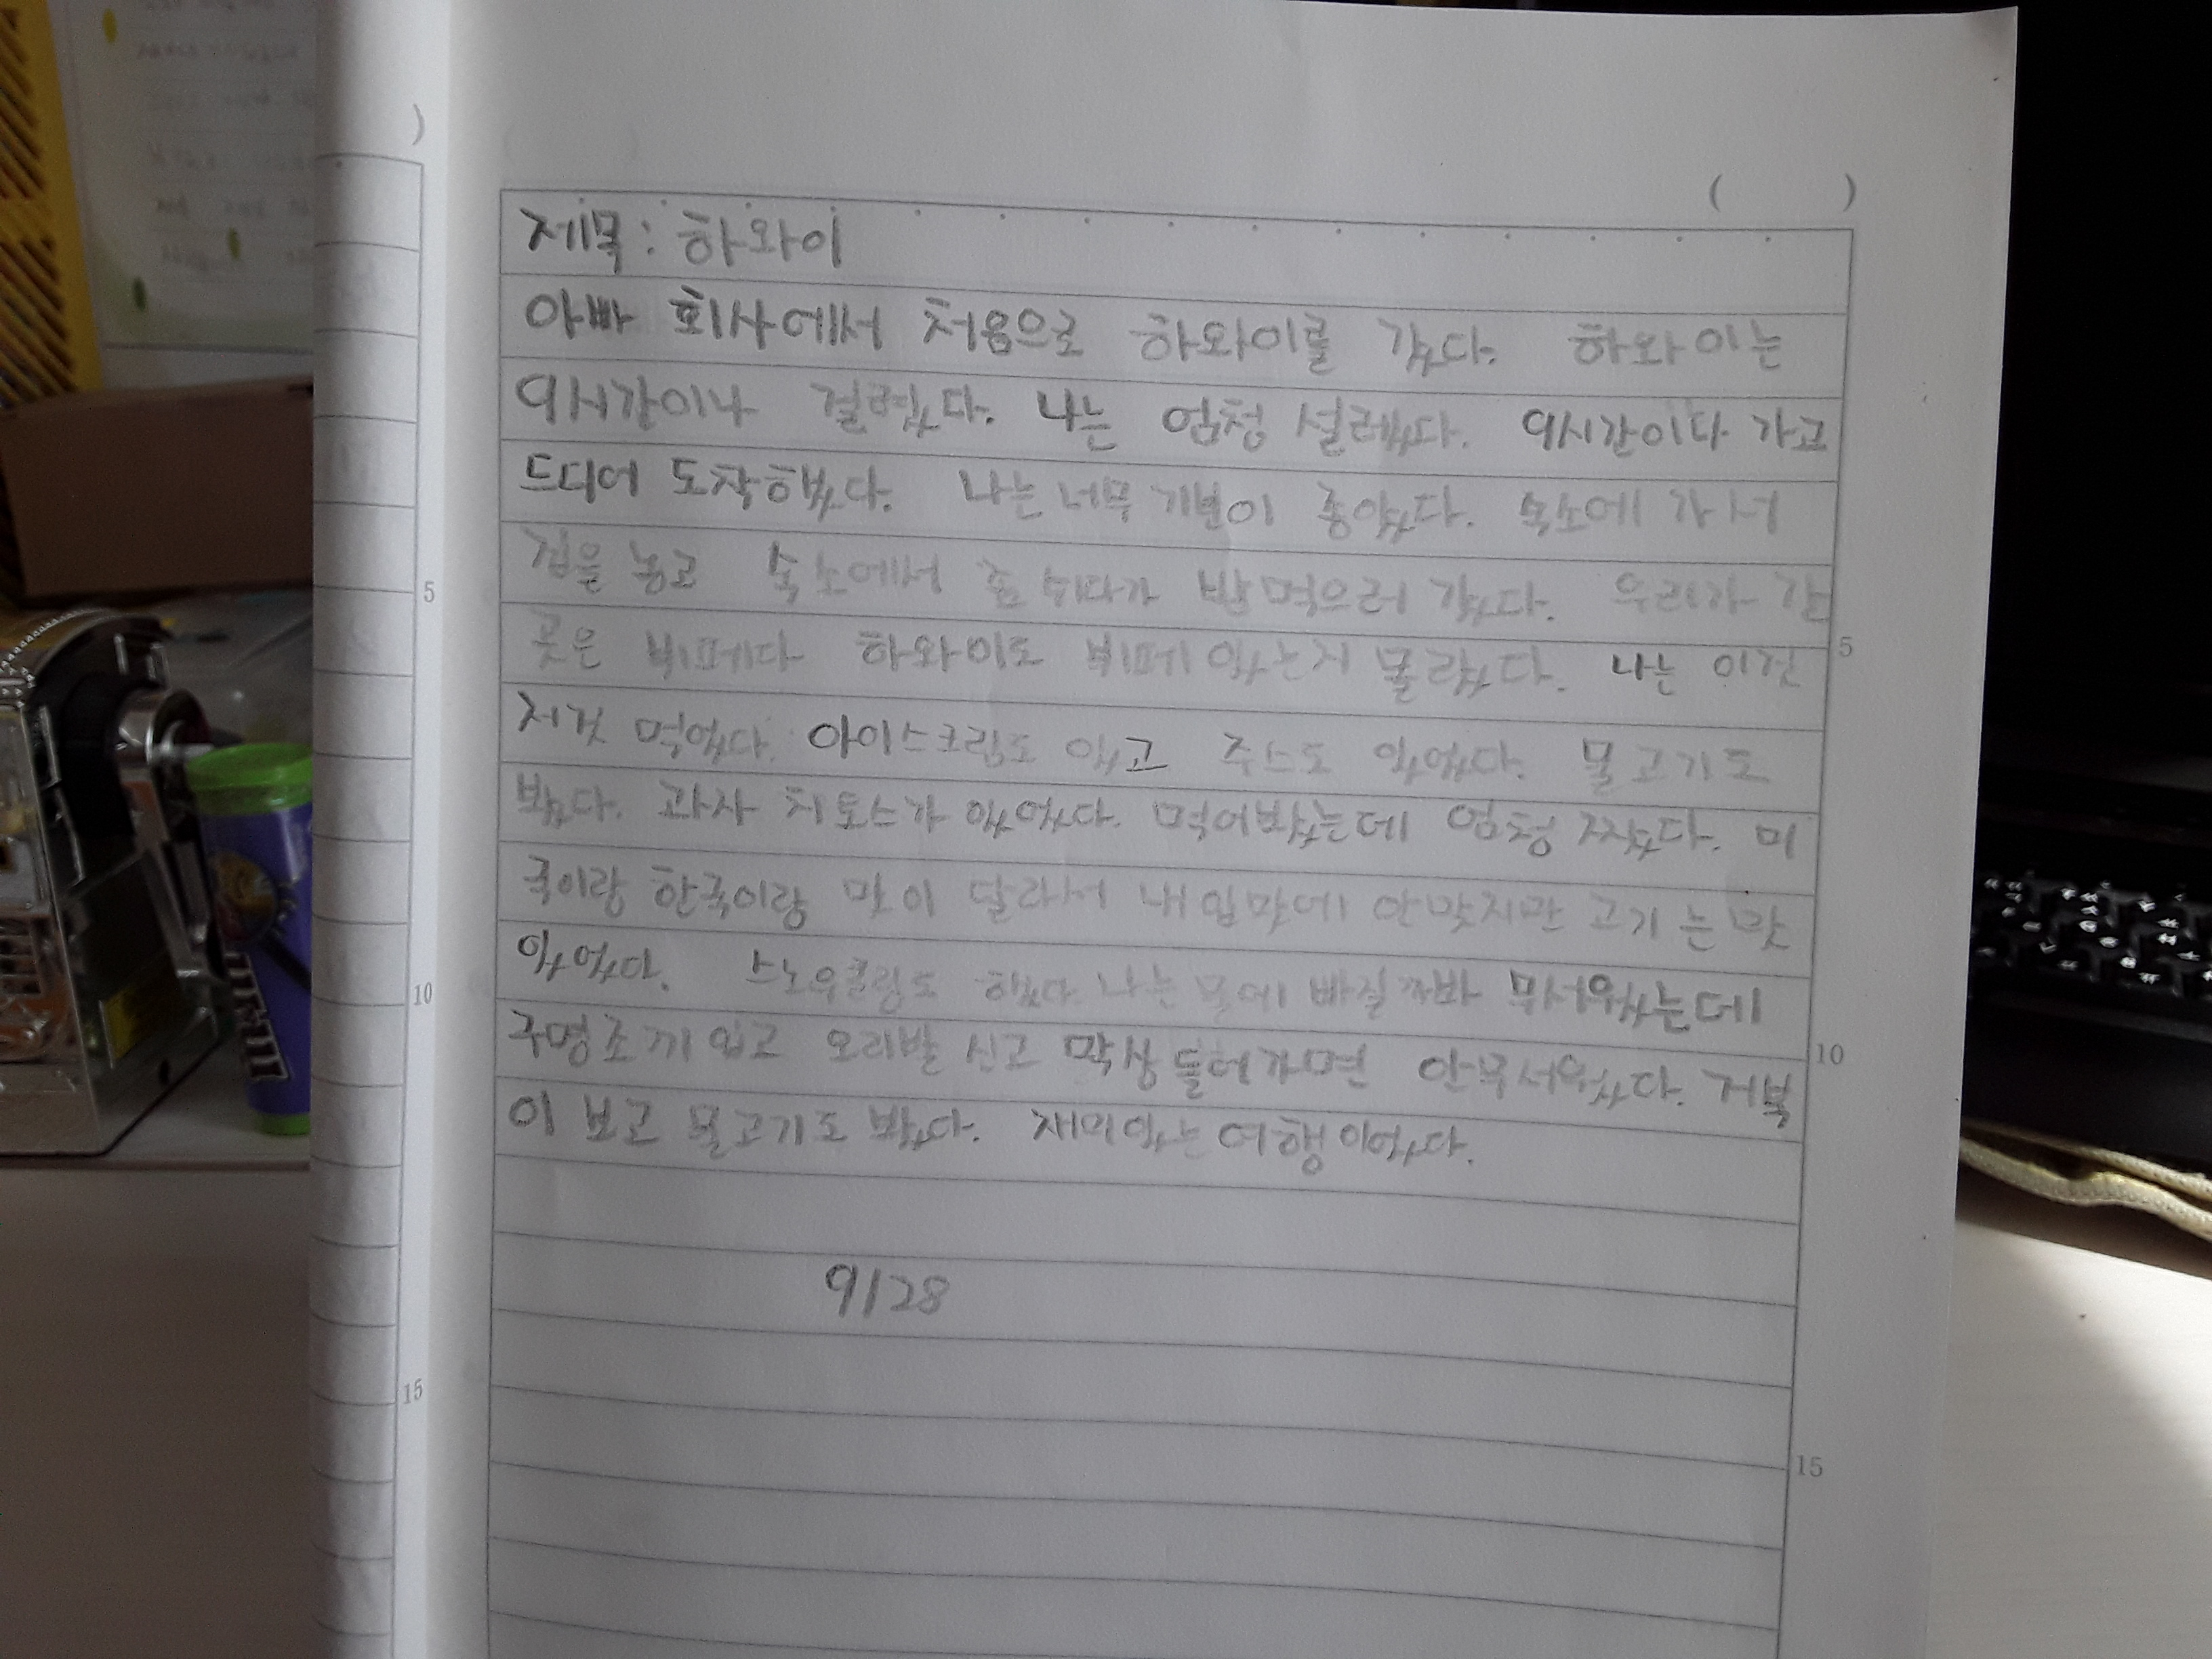 ( )
제목: 하와이
아빠 회사에서 처음으로 하와이를 갔다. 하와이는
9시간이나 걸렸다. 나는 엄청 설레였다. 9시간이 다 가고
드디어 도착했다. 나는 너무 기분이 좋았다. 숙소에 가서
짐을 놓고 숙소에서 좀 쉬다가 밥 먹으러 갔다. 우리가 간
5
곳은 뷔페다 하와이도 뷔페 있는지 몰랐다. 나는 이것
저것 먹었다. 아이스크림도 있고 주스도 있었다. 물고기도
봤다. 과자 치토스가 있었다. 먹어봤는데 엄청 짰다. 미
국이랑 한국이랑 맛이 달라서 내 입맛에 안맞지만 고기는 맛
있었다. 스노우쿨링도 했다 나는 물에 빠질까봐 무서웠는데
10
구명조끼 입고 오리발 신고 막상 들어가면 안무서웠다. 거북
이 보고 물고기도 봤다. 재미있는 여행이었다.
9128
15
)
5
10
15